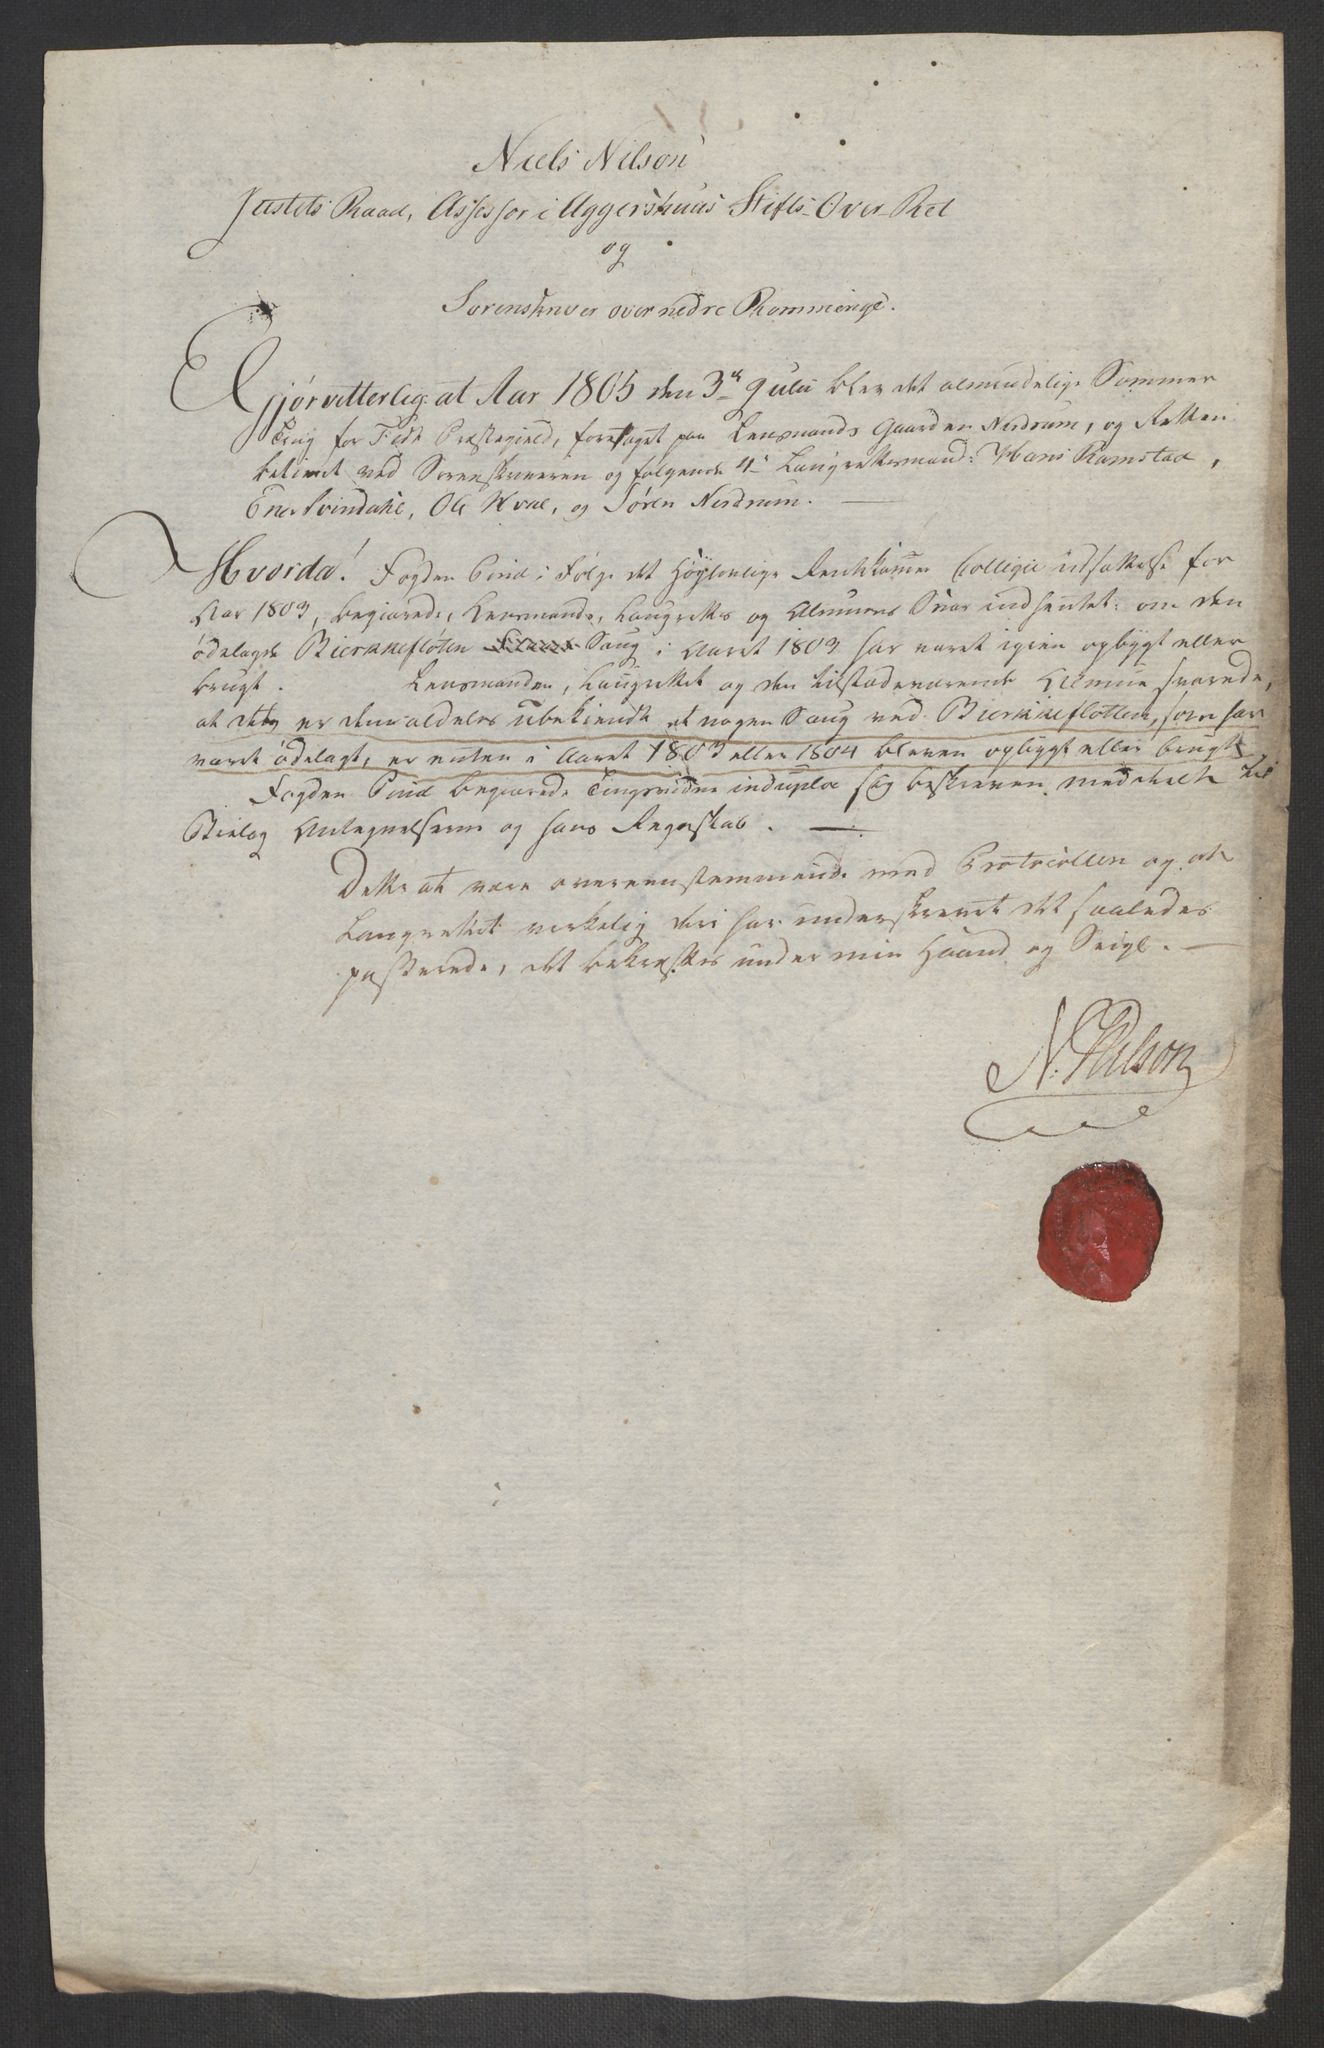 Niels Nilson
Justits Raad, Assessor i Aggershuus Stifts-Over-Ret
og
Sorenskriver over nedre Rommerige.
Gjør vitterlig: at Aar 1805 den 3die Julii blev det almindelige Sommer
Ting for Fedt Præstegield, foretaget paa Lensmands Gaarden Nerdrum, og Retten
betient ved Sorenskriveren og følgende 4re Laugrettesmænd: Hans Ramstad,
Ener Svindahl, Ole Hval, og Søren Nerdrum. —
Hvorda! Fogden Pind i Følge det Höylovlige Rentekammer Collegie udsættelse for
Aar 1803, begiærede, Lensmands, Laugrettes og Almues Svar indhentet: om den
ödelagde Bierkkeflöten Saug i Aaret 1803 har været igien opbygt eller
brugt. Lensmanden, Laugrettet og den tilstædeværende Almue svarede,
at det er dem aldeles ubekiendt at nogen Saug ved Bierkkeflotten, som har
været ödelagt, er enten i Aaret 1803 eller 1804 bleven opbygt eller brugt.
Fogden Pind begiærede Tingsvidne in duplo sig beskreven meddeelt til
Bielag Antegnelserne og hans Regnskab. —
Dette at være overeensstemmende med Protocollen og at
Laugrettet virkelig deri har underskrevet det saaledes
passerede, det bekræftes under min Haand og Seigl. —
N. Nilson